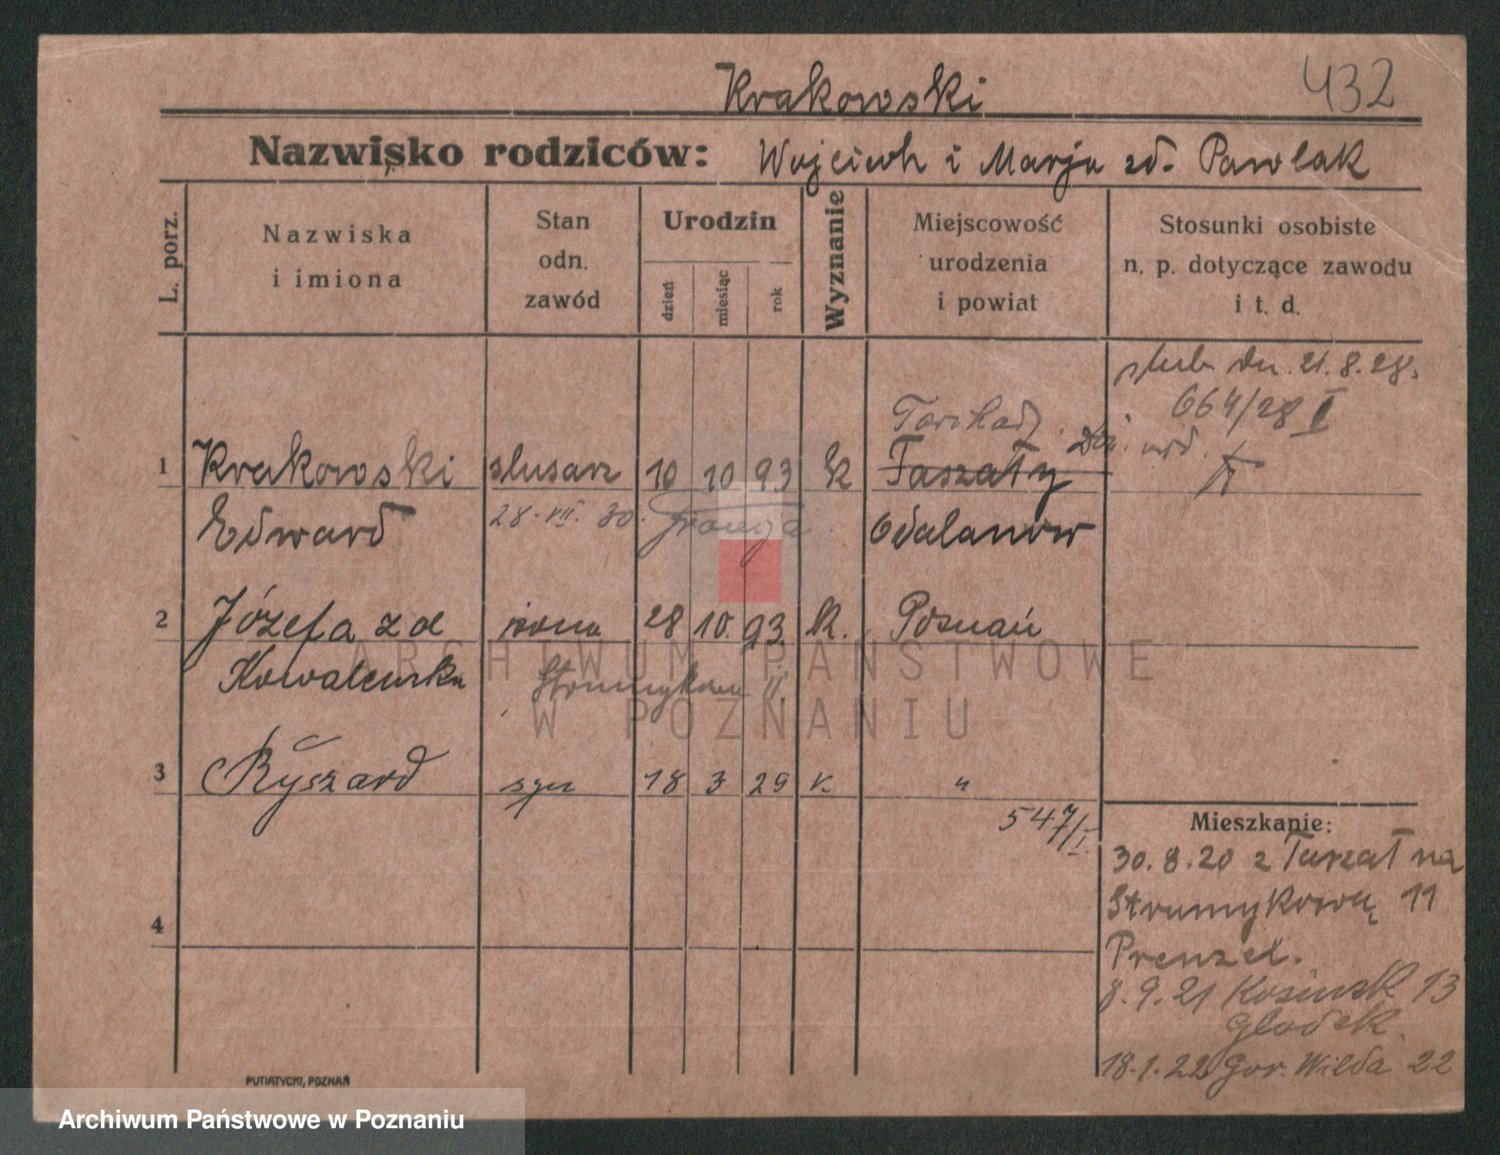 Krakowski
432
Nazwisko rodziców: Wojciech i Marja zd. Pawlak
L. porz.
Nazwiska
i imiona
Stan
odn.
zawód
Urodzin
dzień
miesiąc
rok
Wyznanie
Miejscowość
urodzenia
i powiat
Stosunki osobiste
n. p. dotyczące zawodu
i t. d.
ślub dn. 21.8.28.
664/28 I
1 Krakowski ślusarz 10 10 93 k Faszały
Edward 28. VII. 30. Francja Odalanów
2 Józefa z d żona 28 10. 93 k. Poznań
Kowalewska Strumykowa 11
3 Ryszard syn 18 3 29 k. "
547/I.
4
Mieszkanie:
30.8.20 z Taszał na
Strumykową 11
Prenzel.
8.9.21 13
Głodek.
18.1.22 Gór. Wilda 22
PUTIATYCKI, POZNAŃ
ARCHIWUM PAŃSTWOWE
W POZNANIU
Archiwum Państwowe w Poznaniu